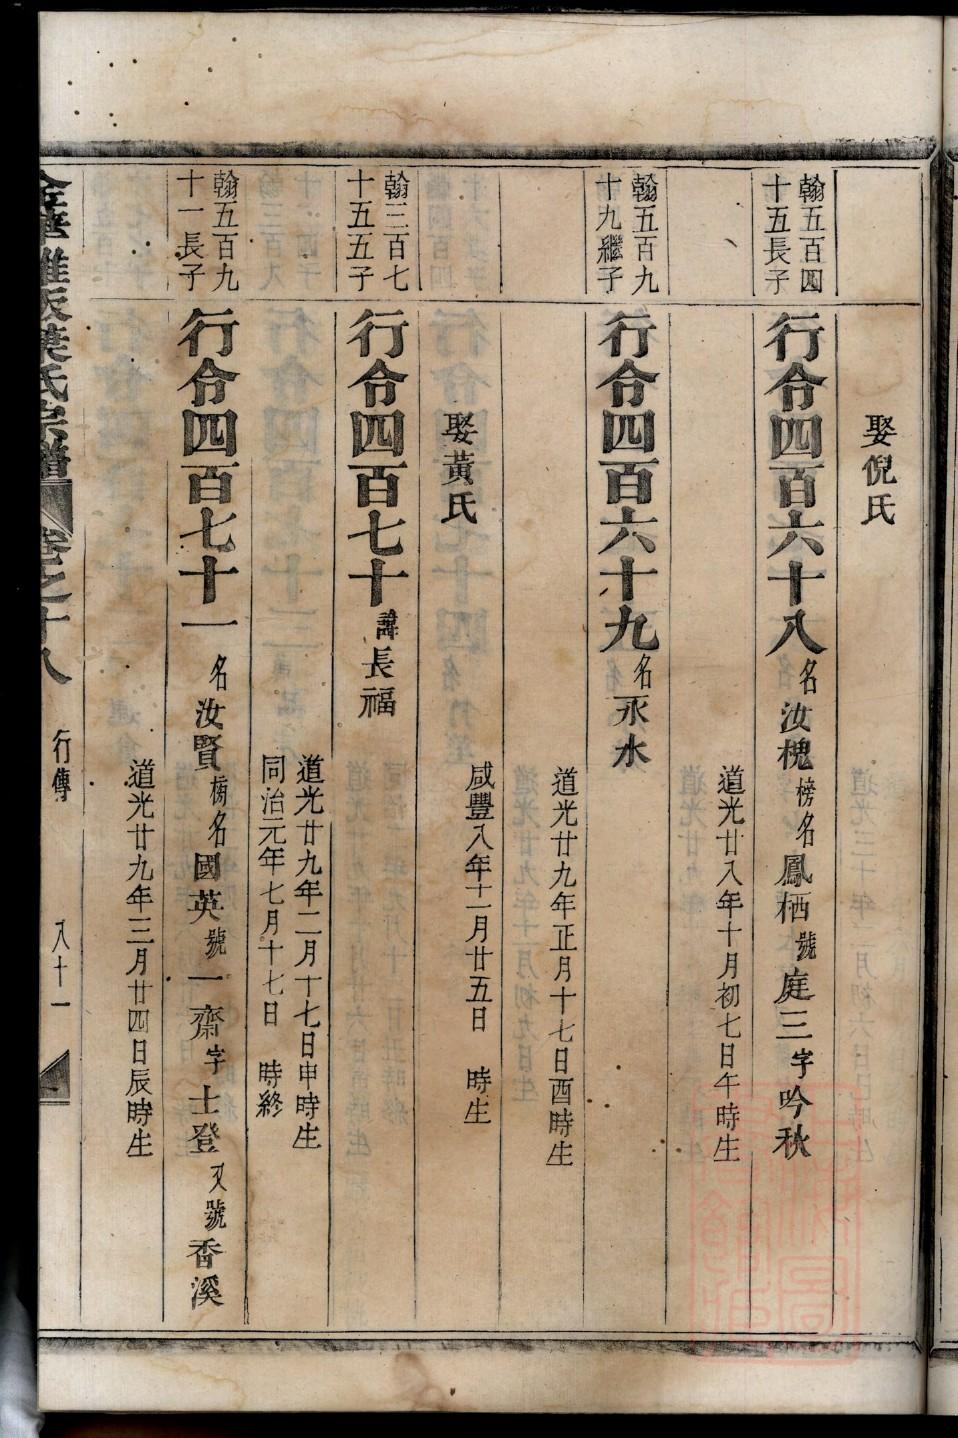 娶倪氏
翰五百四
十五長子
行令四百六十八名汝槐榜名鳳栖號庭三字吟秋
道光廿八年十月初七日午時生
翰五百九
十九繼子
行令四百六十九名永水
道光廿九年正月十七日酉時生
娶黃氏
咸豐八年十一月廿五日 時生
翰三百七
十五五子
行令四百七十諱長福
道光廿九年二月十七日申時生
同治元年七月十七日 時終
翰五百九
十一長子
行令四百七十一名汝賢榜名國英號一齋字士登又號香溪
道光廿九年三月廿四日辰時生
葉氏宗譜 卷之十八 行傳 八十一